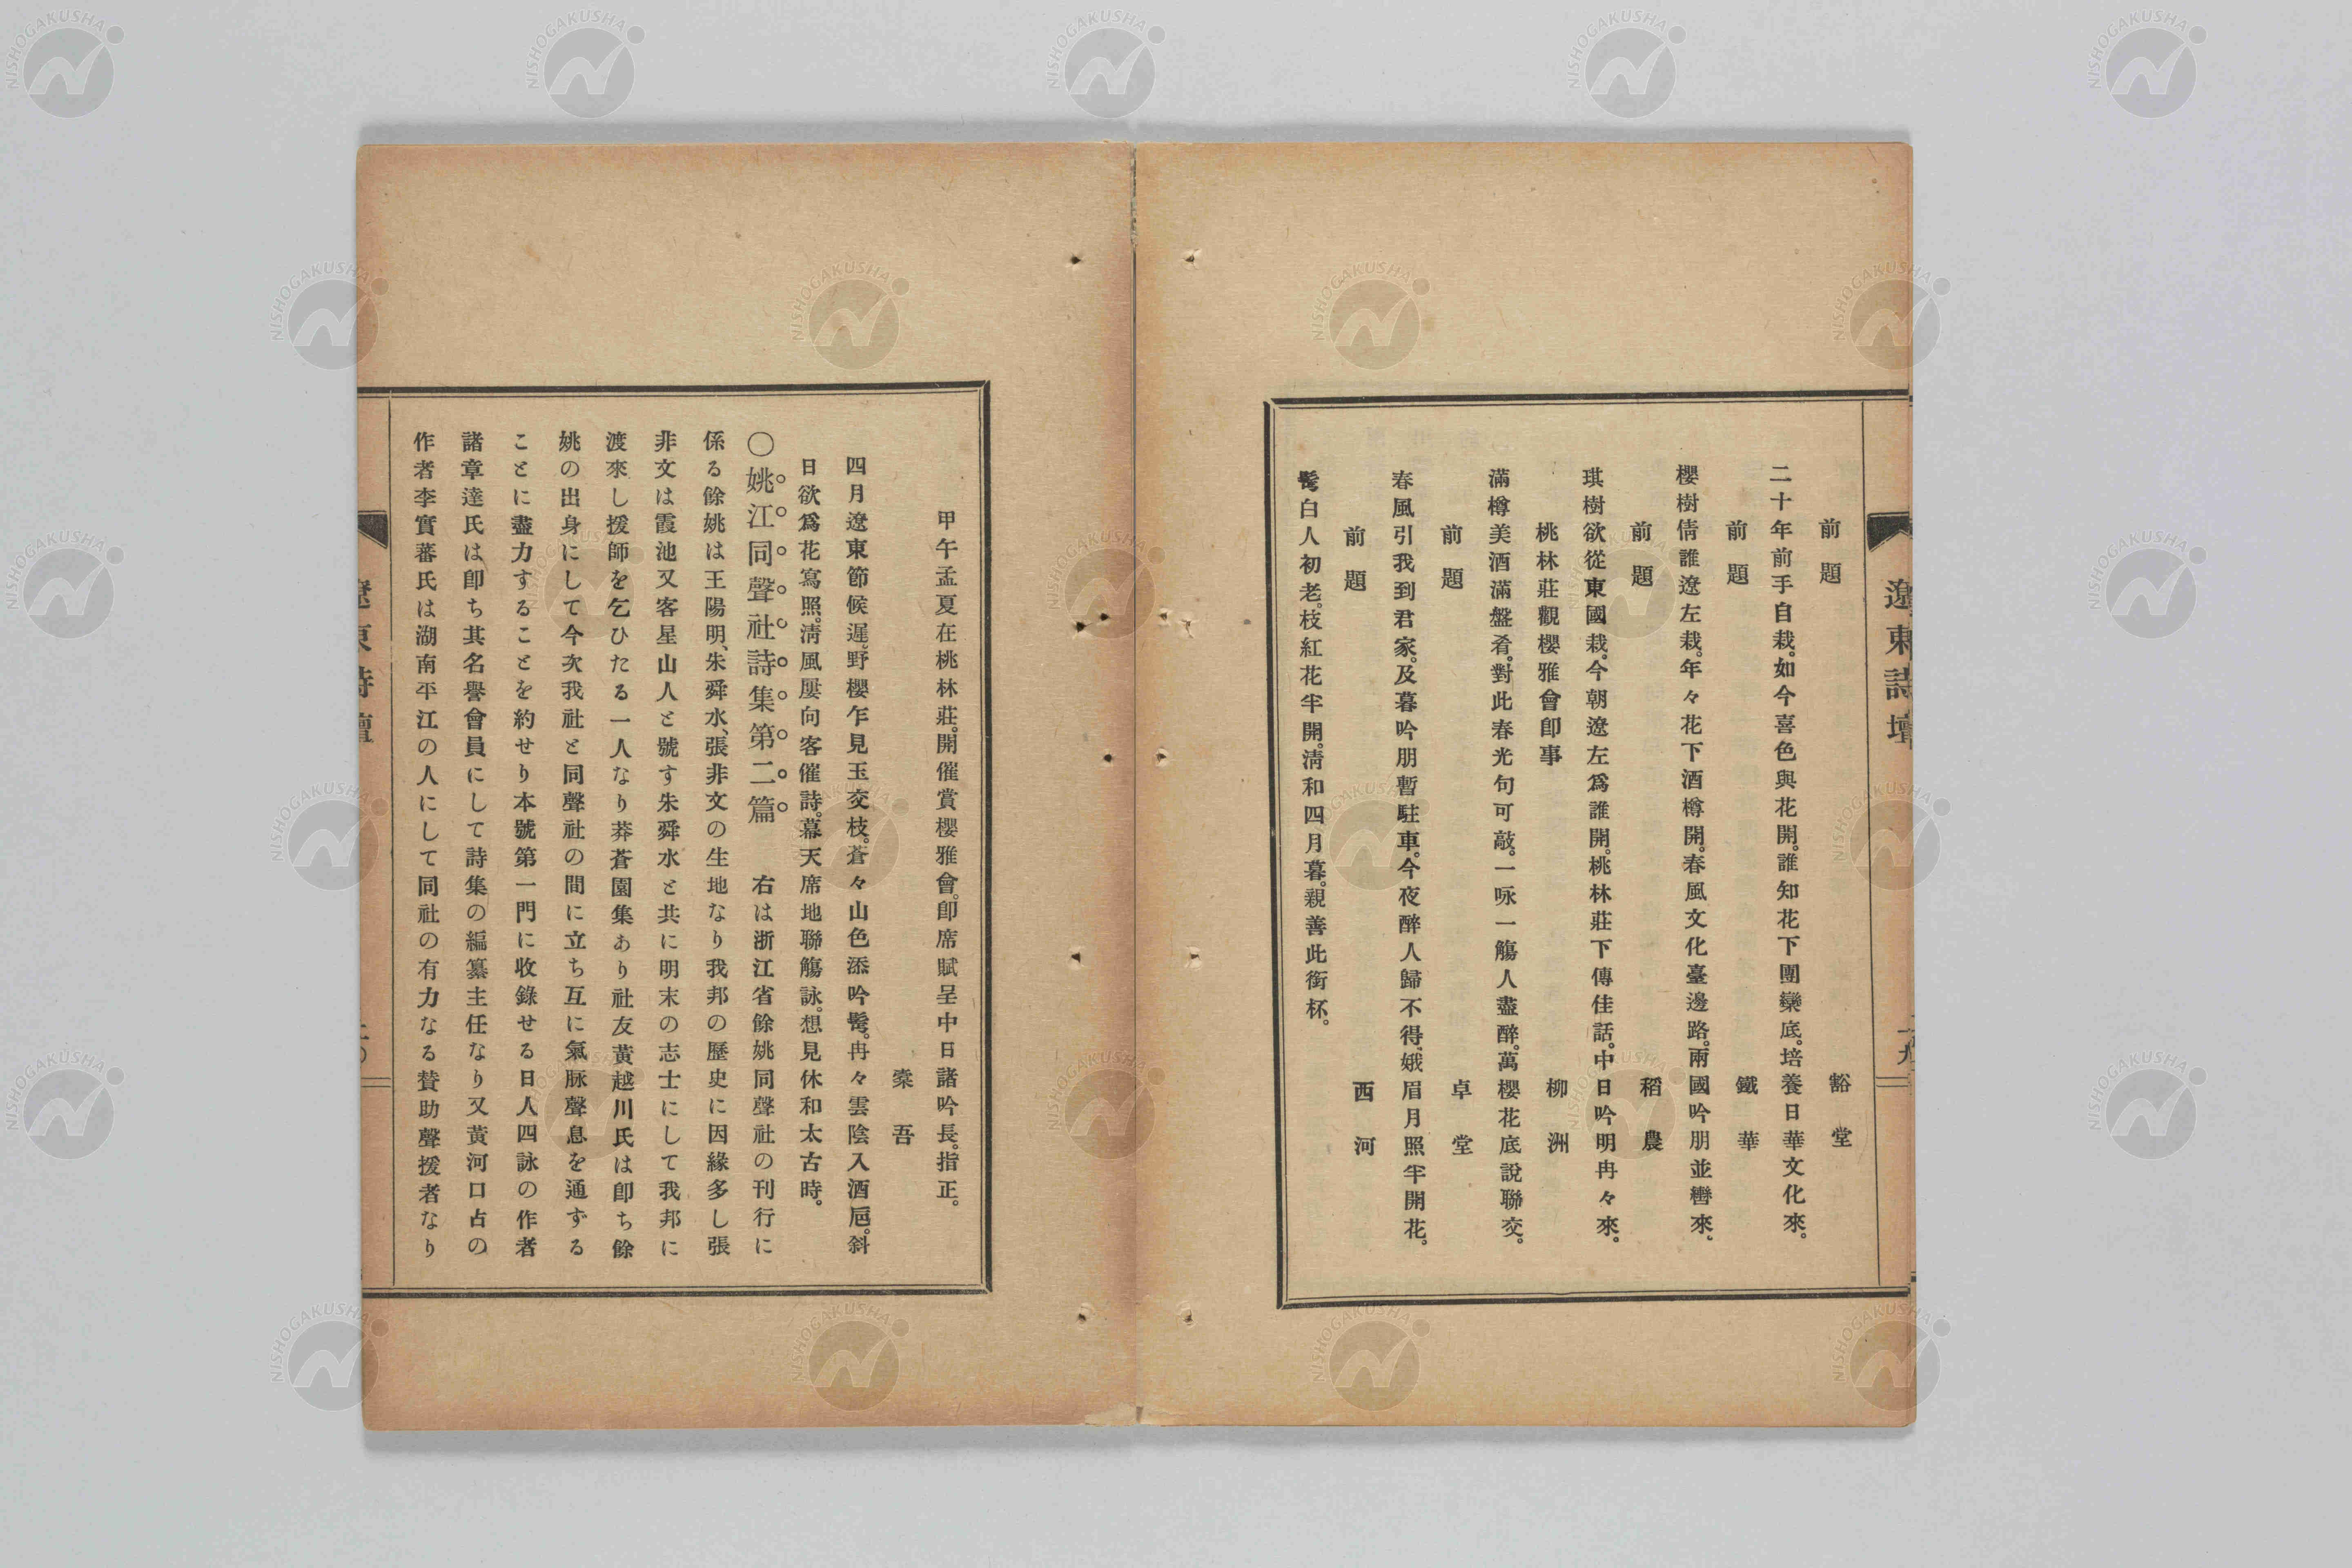 遼東詩壇
前題 豁堂
二十年前手自栽。如今喜色與花開。誰知花下團欒底。培養日華文化來。
前題 鐵華
櫻樹倩誰遼左栽。年々花下酒樽開。春風文化臺邊路。兩國吟朋並轡來。
前題 稻農
琪樹欲從東國栽。今朝遼左爲誰開。桃林莊下傳佳話。中日吟明冉々來。
桃林莊觀櫻雅會卽事 柳洲
滿樽美酒滿盤肴。對此春光句可敲。一咏一觴人盡醉。萬櫻花底說聯交。
前題 卓堂
春風引我到君家。及暮吟朋暫駐車。今夜醉人歸不得。娥眉月照半開花。
前題 西河
髩白人初老。枝紅花半開。淸和四月暮。親善此銜杯。
甲午孟夏在桃林莊。開催賞櫻雅會。卽席賦呈中日諸吟長。指正。
槖吾
四月遼東節候遲。野櫻乍見玉交枝。蒼々山色添吟髩。冉々雲陰入酒巵。斜
日欲爲花寫照。淸風屢向客催詩。幕天席地聯觴詠。想見休和太古時。
〇姚江同聲社詩集第二篇 右は浙江省餘姚同聲社の刊行に
係る餘姚は王陽明、朱舜水、張非文の生地なり我邦の歷史に因緣多し張
非文は霞池又客星山人と號す朱舜水と共に明末の志士にして我邦に
渡來し援師を乞ひたる一人なり莽蒼園集あり社友黃越川氏は卽ち餘
姚の出身にして今次我社と同聲社の間に立ち互に氣脉聲息を通ずる
ことに盡力することを約せり本號第一門に收錄せる日人四詠の作者
諸章達氏は卽ち其名譽會員にして詩集の編纂主任なり又黃河口占の
作者李實蕃氏は湖南平江の人にして同社の有力なる贊助聲援者なり